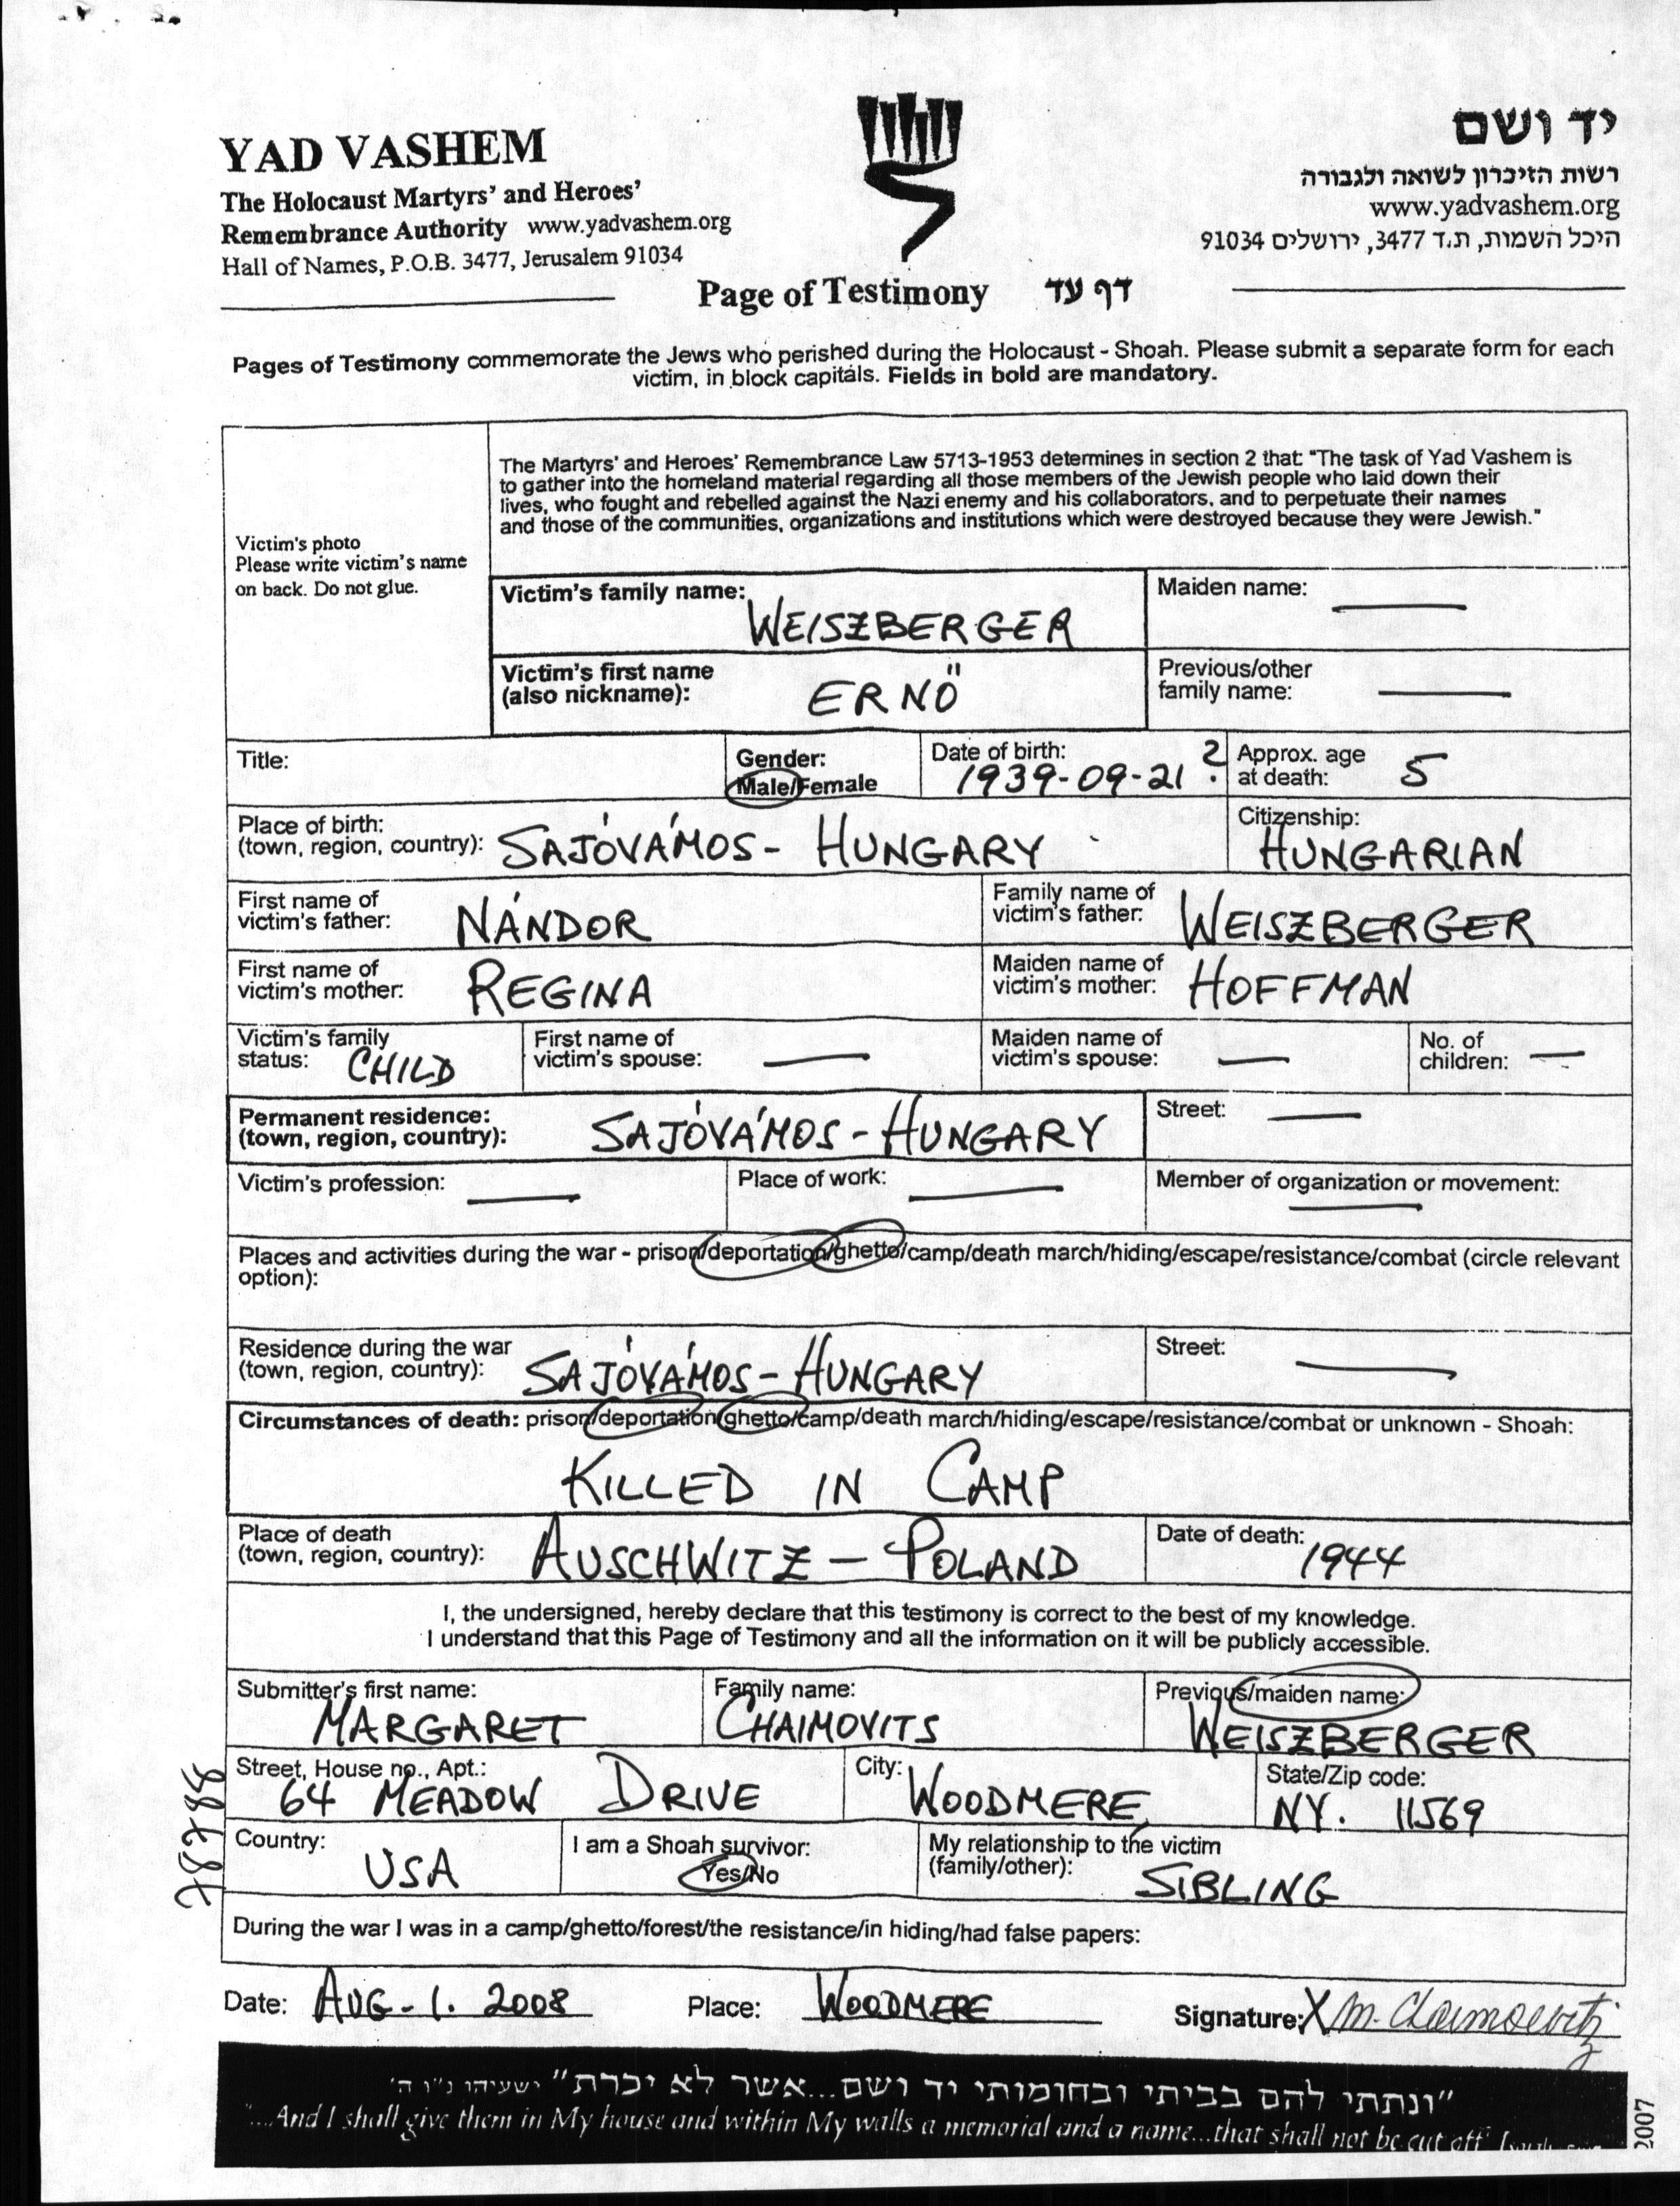 YAD VASHEM
The Holocaust Martyrs' and Heroes'
Remembrance Authority www.yadvashem.org
Hall of Names, P.O.B. 3477, Jerusalem 91034
יד ושם
רשות הזיכרון לשואה ולגבורה
www.yadvashem.org
היכל השמות, ת.ד 3477, ירושלים 91034
Page of Testimony דף עד
Pages of Testimony commemorate the Jews who perished during the Holocaust - Shoah. Please submit a separate form for each
victim, in block capitals. Fields in bold are mandatory.
Victim's photo
Please write victim's name
on back. Do not glue.
The Martyrs' and Heroes' Remembrance Law 5713-1953 determines in section 2 that: "The task of Yad Vashem is
to gather into the homeland material regarding all those members of the Jewish people who laid down their
lives, who fought and rebelled against the Nazi enemy and his collaborators, and to perpetuate their names
and those of the communities, organizations and institutions which were destroyed because they were Jewish."
Victim's family name: WEISZBERGER
Maiden name: —
Victim's first name
(also nickname): ERNŐ
Previous/other
family name: —
Title:
Gender:
Male/Female
Date of birth:
1939-09-21 ?
Approx. age
at death: 5
Place of birth:
(town, region, country): SAJÓVÁMOS - HUNGARY
Citizenship:
HUNGARIAN
First name of
victim's father: NÁNDOR
Family name of
victim's father: WEISZBERGER
First name of
victim's mother: REGINA
Maiden name of
victim's mother: HOFFMAN
Victim's family
status: CHILD
First name of
victim's spouse: —
Maiden name of
victim's spouse: —
No. of
children: —
Permanent residence:
(town, region, country): SAJÓVÁMOS - HUNGARY
Street: —
Victim's profession: —
Place of work: —
Member of organization or movement:
—
Places and activities during the war - prison/deportation/ghetto/camp/death march/hiding/escape/resistance/combat (circle relevant
option):
Residence during the war
(town, region, country): SAJÓVÁMOS - HUNGARY
Street: —
Circumstances of death: prison/deportation/ghetto/camp/death march/hiding/escape/resistance/combat or unknown - Shoah:
KILLED IN CAMP
Place of death
(town, region, country): AUSCHWITZ - POLAND
Date of death:
1944
I, the undersigned, hereby declare that this testimony is correct to the best of my knowledge.
I understand that this Page of Testimony and all the information on it will be publicly accessible.
Submitter's first name:
MARGARET
Family name:
CHAIMOVITS
Previous/maiden name:
WEISZBERGER
Street, House no., Apt.:
64 MEADOW DRIVE
City:
WOODMERE
State/Zip code:
NY. 11569
Country:
USA
I am a Shoah survivor:
Yes/No
My relationship to the victim
(family/other): SIBLING
During the war I was in a camp/ghetto/forest/the resistance/in hiding/had false papers:
Date: AUG - 1. 2008
Place: WOODMERE
Signature: X M. Chaimovitz
"ונתתי להם בביתי ובחומותי יד ושם...אשר לא יכרת" ישעיהו נ"ו ה'
"...And I shall give them in My house and within My walls a memorial and a name...that shall not be cut off"
2007